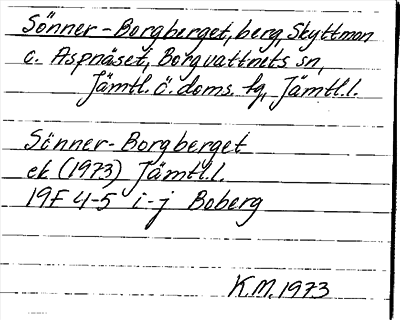 Sönner-Borgberget, berg, Skyttmon
o. Aspnäset, Borgvattnets sn,
Jämtl. ö. doms. tg, Jämtl.l.
Sönner-Borgberget
ek (1973) Jämtl.l.
19F 4-5 i-j Boberg
K.M. 1973